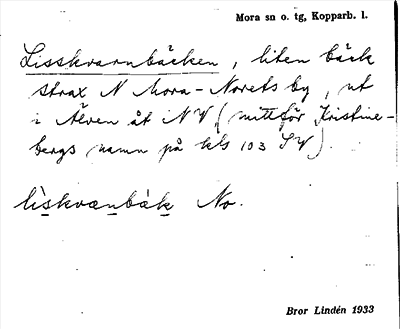 Mora sn o. tg, Kopparb. l.
Lisskvarnbäcken, liten bäck
strax N Mora-Norets by, ut
i Älven åt NV (mittför Kristine-
bergs namn på kbl 103 SV).
liskvænbäk No.
Bror Lindén 1933